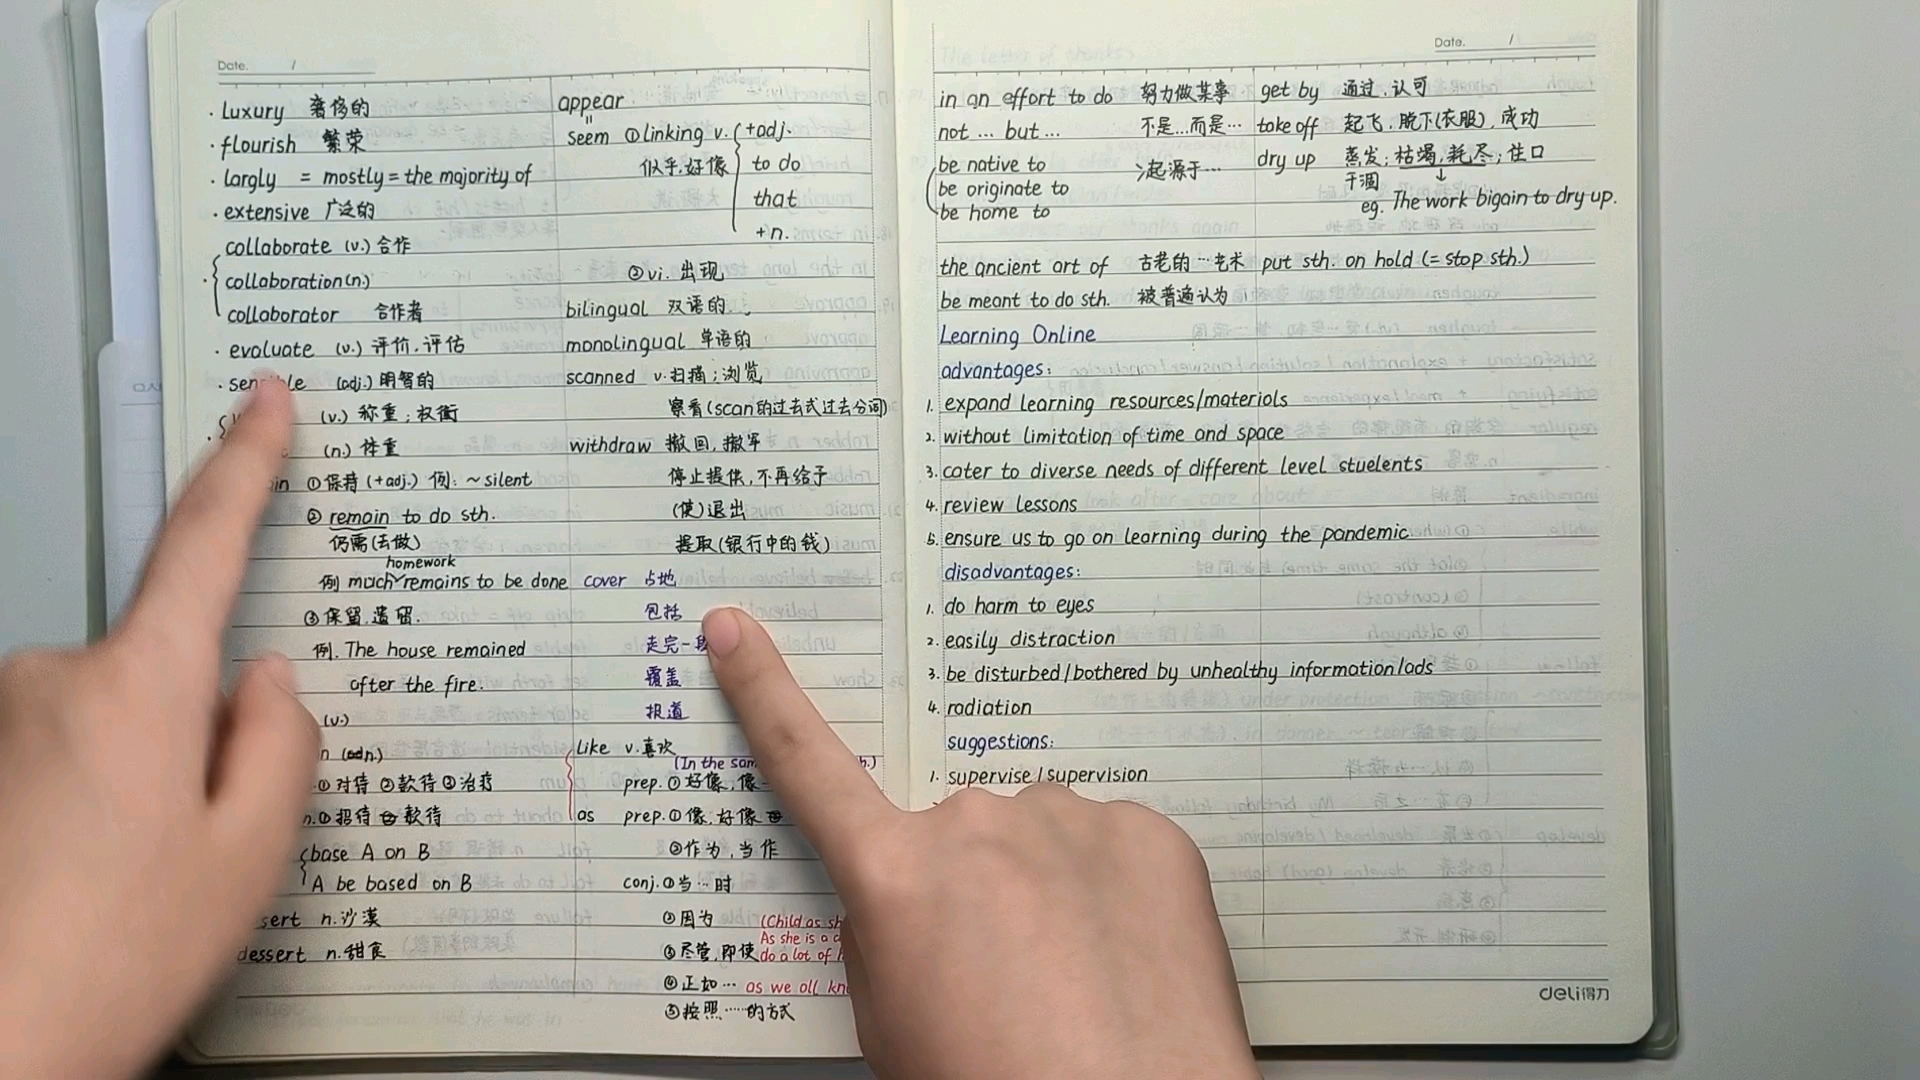 Date. /
· luxury 奢侈的
· flourish 繁荣
· largly = mostly = the majority of
· extensive 广泛的
collaborate (v.) 合作
· collaboration(n.)
collaborator 合作者
· evaluate (v.) 评价,评估
· (adj.) 明智的
· (v.) 称重;权衡
(n.) 体重
①保持(+adj.) 例: ~silent
② remain to do sth.
仍需(去做)
homework
例 much remains to be done
③保留,遗留.
例. The house remained
after the fire.
(v.)
①对待 ②款待 ③治疗
招待 款待
base A on B
A be based on B
n.沙漠
dessert n.甜食
appear
=
seem ①linking v. +adj.
似乎,好像 to do
that
+n.
②vi. 出现
bilingual 双语的
monolingual 单语的
scanned v.扫描;浏览
察看(scan的过去式过去分词)
withdraw 撤回,撤军
停止提供,不再给予
(使)退出
提取(银行中的钱)
cover 占地
包括
走完一段
覆盖
报道
like v.喜欢
(In the
prep.①好像,像
as prep.①像;好像
②作为,当作
conj.①当…时
②因为 (Child as
As she is a
③尽管,即使 do a lot of
④正如… as we all
⑤按照……的方式
Date. /
in an effort to do 努力做某事
not ... but ... 不是...而是...
be native to
be originate to 起源于...
be home to
get by 通过,认可
take off 起飞,脱下(衣服),成功
dry up 蒸发;枯竭,耗尽;住口
干涸
eg. The work bigain to dry up.
the ancient art of 古老的…艺术
put sth. on hold (= stop sth.)
be meant to do sth. 被普遍认为
Learning Online
advantages:
1. expand learning resources/materials
2. without limitation of time and space
3. cater to diverse needs of different level stuelents
4. review lessons
5. ensure us to go on learning during the pandemic.
disadvantages:
1. do harm to eyes
2. easily distraction
3. be disturbed/bothered by unhealthy information/ads
4. radiation
suggestions:
1. supervise/supervision
deli得力